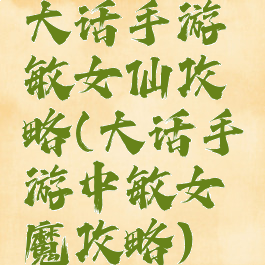 大话手游
敏女仙攻
略(大话手
游中敏女
魔攻略)